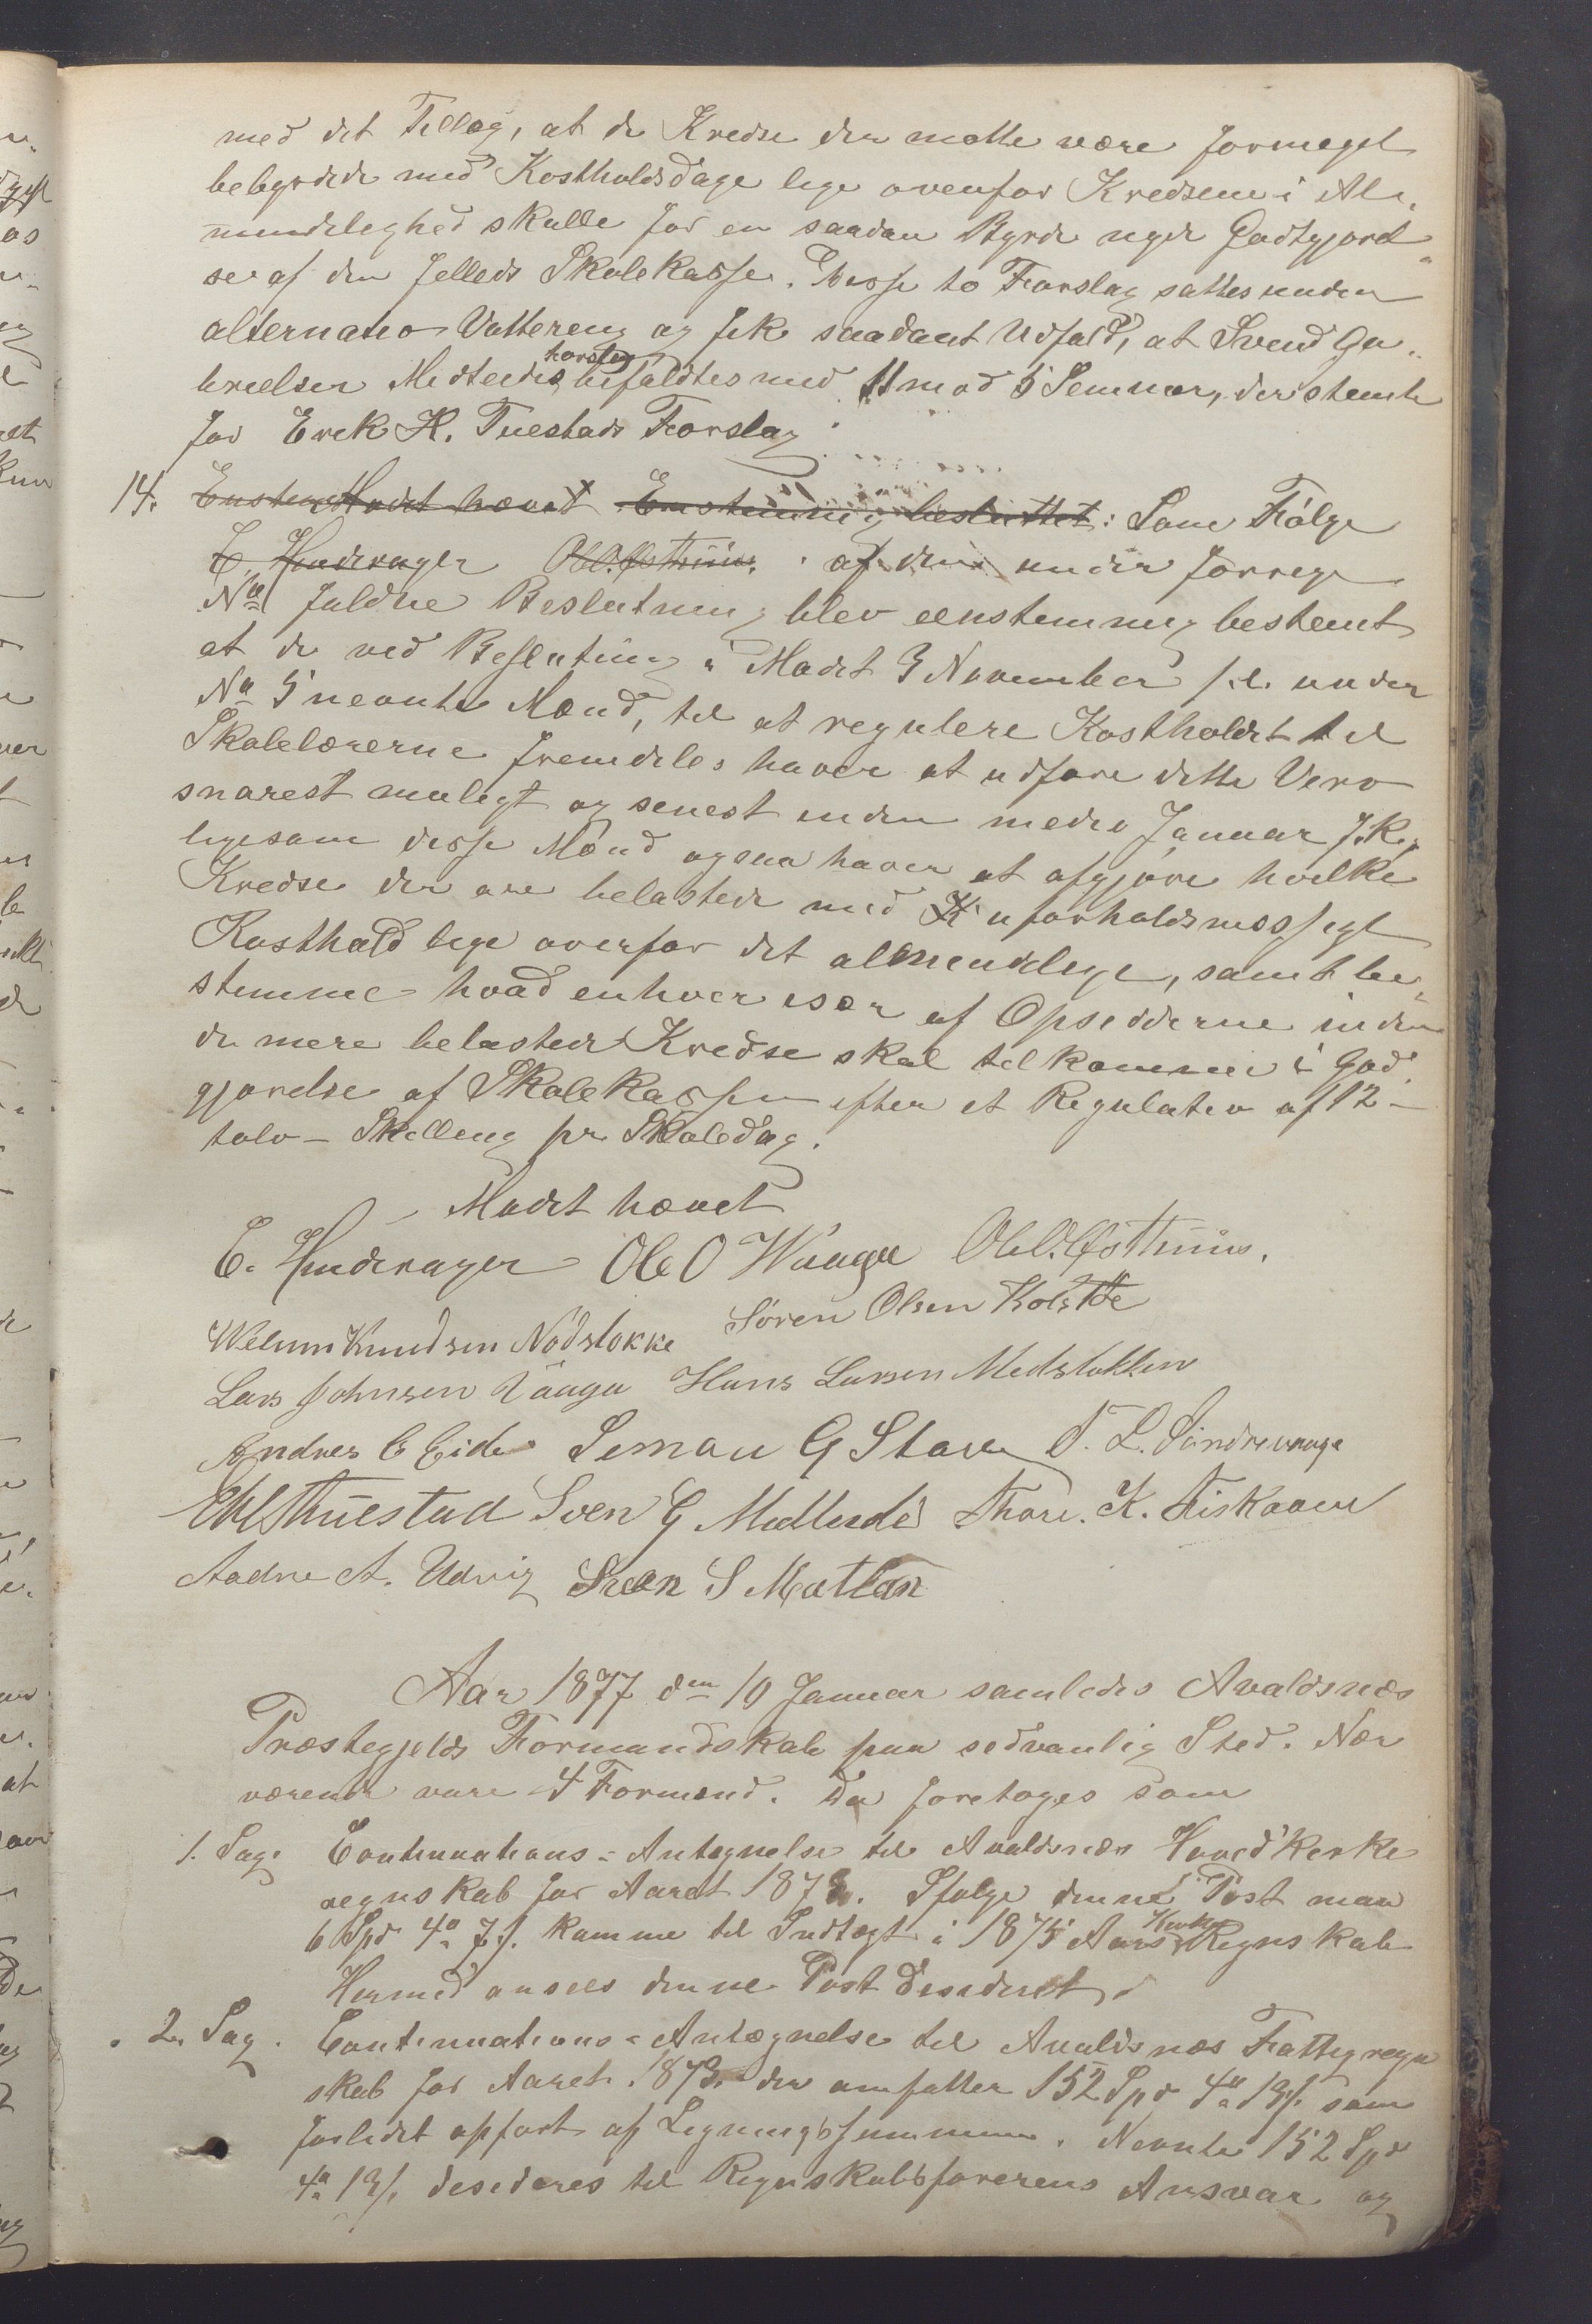 med det Tillæg, at de Kredse der maatte være formeget
bebyrdede med Kostholdsdage lige ovenfor Kredsene i Al-
mindelighed skulle for en saadan Byrde nyde Godtgjørel-
se af den fælleds Skolekasse. Disse to Forslag sattes under
alternativ Vottering og fik saadant Udfald, at Svend Ga-
brielsen Midteides forslag bifaldtes med 11 mod 5 Stemmer, der stemte
for Erik H. Tuestads Forslag.
14. Enstem Mødet hævet Enstemmig besluttet: Som Følge
E. Hinderager Ole O. Østhuus. af den under forrige
No faldne Beslutning blev eenstemmig bestemt
at de ved Beslutning i Mødet 3 November f.A. under
No 5 nævnte Mænd, til at regulere Kostholdet til
Skolelærerne fremdeles haver at udføre dette Verv
snarest muligt og senest inden medio Januar f.K.,
ligesom disse Mænd ogsaa haver at afgjøre hvilke
Kredse der ere belastede med K uforholdsmæssigt
Kosthold lige overfor det almindelige, samt be-
stemme hvad enhver især af Opsidderne inden
de mere belastede Kredse skal tilkomme i God-
gjørelse af Skolekassen efter et Regulativ af 12 -
tolv - Skilling pr Skoledag.
Mødet hævet
E. Hinderager Ole O Waage Ole O. Østhuus.
Willum Knudsen Nødstokke Søren Olsen Kolstøe
Lars Johnsen Vaage Hans Larsen Medstokken
Andres E Eide Simon G Stave T. L. Søndrevaage
E H Thuestad Sven G Mitteide Thore. K. Fiskaaen
Aadne A. Udvig Sven S Matland
Aar 1877 den 10 Januar samledes Avaldsnæs
Præstegjelds Formandskab paa sædvanlig Sted. Nær
værende vare 4 Formænd. Da foretoges som
1. Sag. Continuations-Antegnelse til Avaldsnæs Hovedkirke
regnskab for Aaret 1873. Ifølge denne Post maa
6 Spd 4o 7s. komme til Indtægt i 1875 Aars Kirke Regnskab
Hermed ansees denne Post Desideret.
2. Sag. Continuations-Antegnelse til Avaldsnæs Fattigregn
skab for Aaret 1873. der omfatter 152 Spd 4o 13s. som
forlidet opført af Ligningssummen. Nævnte 152 Spd
4o 13s. desideres til Regnskabsførerens Ansvar og